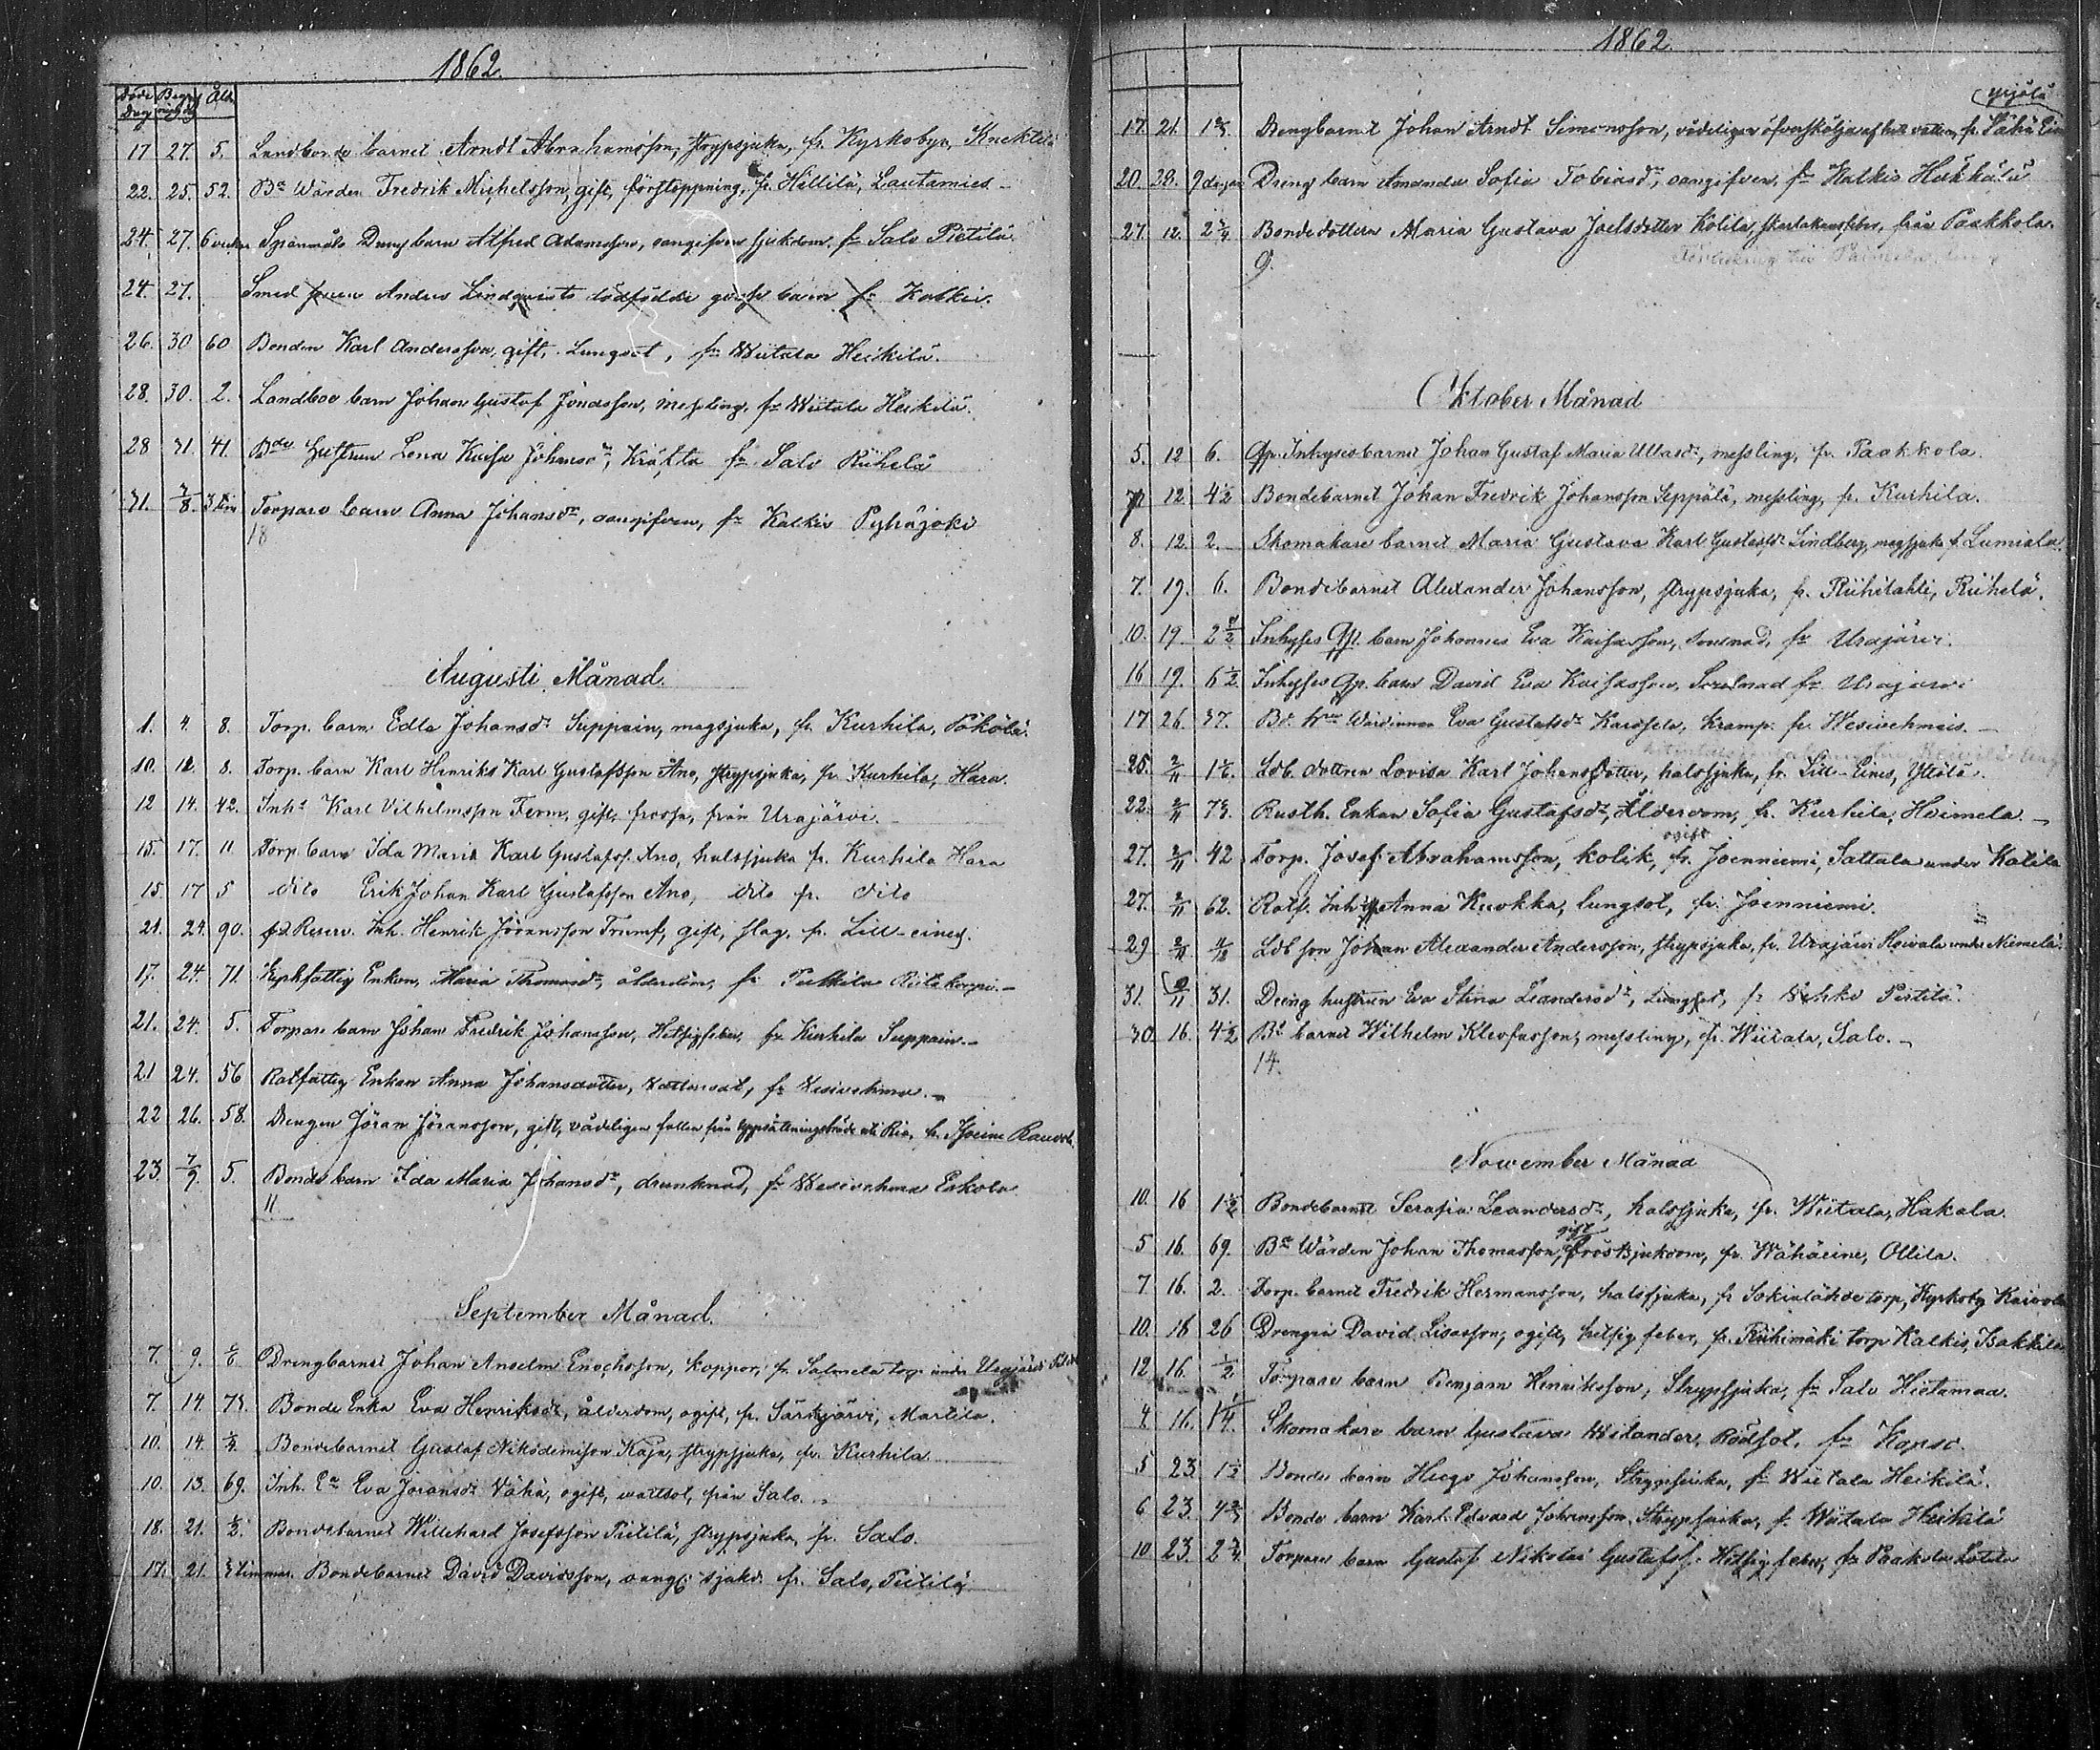 1862.
Döde Dag Begr. Åld.
17 27. 5. Landbonde barnet Arndt Abrahamsson, strypsjuka, fr. Kyrkobyn, Knektilä
22. 25. 52. Bde Wärden Fredrik Michelsson, gift, förstoppning, fr. Hillilä, Lautamies
24. 27. 6 veckor Spanmåls Dreng barn Alfred Adamsson, oangifven sjukdom, fr Salo Pietilä
24. 27. Smed Andres Lindqvists dödfödde barn fr Kalkis.
26. 30 60 Bonden Karl Andersson, gift, Lungsot, fr Wiitala Heikilä.
28. 30. 2. Landboe barn Johan Gustaf Jonasson, messling, fr Wiitala Heikilä.
28 31. 41. Bde Hustrun Lena Kaisa Johansdr, Kräfta fr Salo Riihelä
31. 3/8. 3 tim Torpare barn Anna Johansdr, oangifven, fr Kalkis Pyhäjoki
18
Augusti Månad.
1. 4. 8. Torp. barn Edla Johansdr Suppain, magsjuka, fr. Kurhila, Pökölä.
10. 12. 8. Torp. barn Karl Henriks Karl Gustafsson Ano, strypsjuka, fr. Kurhila, Hara.
12 14. 42. Inhs Karl Vilhelmsson Ferm, gift, frossa, från Urajärvi.
15. 17. 11 Torp. barn Ida Maria Karl Gustafss. Ano, halssjuka fr. Kurhila Hara
15 17 5 dito Erik Johan Karl Gustafsson Ano, dito fr. dito
21. 24. 90. fd. Reserv. Inh. Henrik Jöransson Trumf, gift, slag, fr. Lill-eines.
17. 24. 71. Kyrkfattig Enkan, Maria Thomasdr, ålderdom, fr Pukkila Riitakorpi.
21. 24. 5. Torpare barn Johan Fredrik Johansson, Hetsigfeber, fr Kurhila Suppain.
21 24. 56 Rotfattig Enkan Anna Johansdotter, vattusot, fr Vesivehmas.
22 26. 58. Drengen Jöran Jöransson, gift, vådeligen fallen från uppsättningsbräde uti Ria, fr.
23. 7/9. 5. Bonde barn Ida Maria Johansdr, drunknad, fr Wesivehmas Eskola
11
September Månad.
7. 9. 5/6 Drengbarnet Johan Anselm Enochsson, koppor, fr. Salmela torp under Urajärvi
7 14. 73. Bonde Enka Eva Henriksdr, ålderdom, ogift, fr. Särkijärvi, Martila.
10. 14. 1/4. Bondebarnet Gustaf Nikodemisson Kaja, strypsjuka, fr. Kurhila
10. 13. 69. Inh. Ea Eva Joransdr Vähä, ogift, vattsot, från Salo.
18. 21. 1/2. Bondebarnet Willehard Josefsson Pietilä, strypsjuka, fr. Salo.
17. 21. 3 timmar. Bondebarnet David Davidsson, oangif sjukd. fr. Salo, Pietilä
1862
Yrjölä
17 21. Drengbarnet Johan Arndt Simonsson, vådeligen öfversköljd af hett vatten, fr. Vähä Eines
20. 28. 9 dagar Dreng barn Amanda Sofia Tobiasdr, oangifven, fr Kalkis Häkkälä
27. 12. 2 3/4 Bondedottern Maria Gustava Joelsdotter Kotila, skarlakansfeber, från Paakkola.
9.
Oktober Månad
5. 12 6. Inhysesbarnet Johan Gustaf Maria Ullasdr, messling, fr. Paakkola.
7 12 4 1/2 Bondebarnet Johan Fredrik Johansson Seppälä, messling, fr. Kurhila.
8. 12. 2. Skomakare barnet Maria Gustava Karl Gustafsdr Lindberg, magsjuka f. Lumiala.
7. 19. 6. Bondebarnet Alexander Johansson, strypsjuka, fr. Riihilahti, Riihelä.
10. 19 Inhyses barn Johannes Eva Kaisasson, fr Urajärvi.
16 19. 6 1/2 Inhyses barn David Eva Kaisasson, fr Urajärvi
17 26. 37. Bd. Wärdinnan Eva Gustafsdr Karosela, kramp. fr. Wesivehmais.
25. 2/11 1 1/6. Ldb. dottren Lovisa Karl Johansdotter, halssjuka, fr. Lill-Eines, Ylölä.
22. 2/11 73. Rusth. Enkan Sofia Gustafsdr, Ålderdom, fr. Kurhila, Heimela.
27. 2/11 42 Torp. Josef Abrahamsson, kolik, ogift fr. Joenniemi, Sattala under Katila
27. 2/11 62. Rotf. Inh Anna Kuokka, lungsot, fr. Joenniemi.
29 2/11 Ldb son Johan Alexander Andersson, strypsjuka, fr. Urajärvi Hoivala under Niemelä.
31. 9/11 31. Dreng hustrun Eva Stina Leandersdr, Lungsot, fr Pietilä
30. 16. 4 1/2 Bd barnet Wilhelm Kleofasson, messling, fr. Wiitala, Salo.
14.
November Månad
10. 16 1 1/2 Bondebarnet Serafia Leandersdr, halssjuka, fr. Wiitala, Hakala.
5 16. 69. Bde Wärden Johan Thomasson, gift, bröstsjukdom, fr. Wähäeine, Ollila.
7 16. 2. Torp. barnet Fredrik Hermansson, halssjuka, fr Sokialähde torp, Kyrkoby Kaivola
10. 16 26 Drengen David Lisasson, ogift, hetsig feber, fr. Riihimäki torp Kalkis, Isokkila
12 16. 1/2 Torpare barn Benjam Henriksson, Strypsjuka, fr Salo Hietamaa.
4. 16. 1/4. Skomakare barn Gustava Wilander, Rödsot, fr Kopso.
5 23 1 1/2 Bonde barn Hugo Johansson, Strypsjuka, fr Wiitala Heikilä.
6 23. 4 3/4 Bonde barn Karl Edvard Johansson, Strypsjuka, f. Wiitala Heikilä
10 23. 2 3/4 Torpare barn Gustaf Nikolai Gustafss. Hetsig feber, fr Paakola Lotila